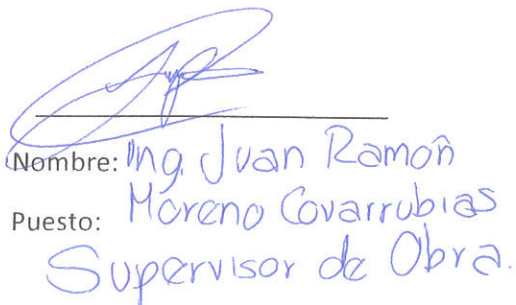 Nombre: Ing. Juan Ramón
Moreno Covarrubias
Puesto:
Supervisor de Obra.